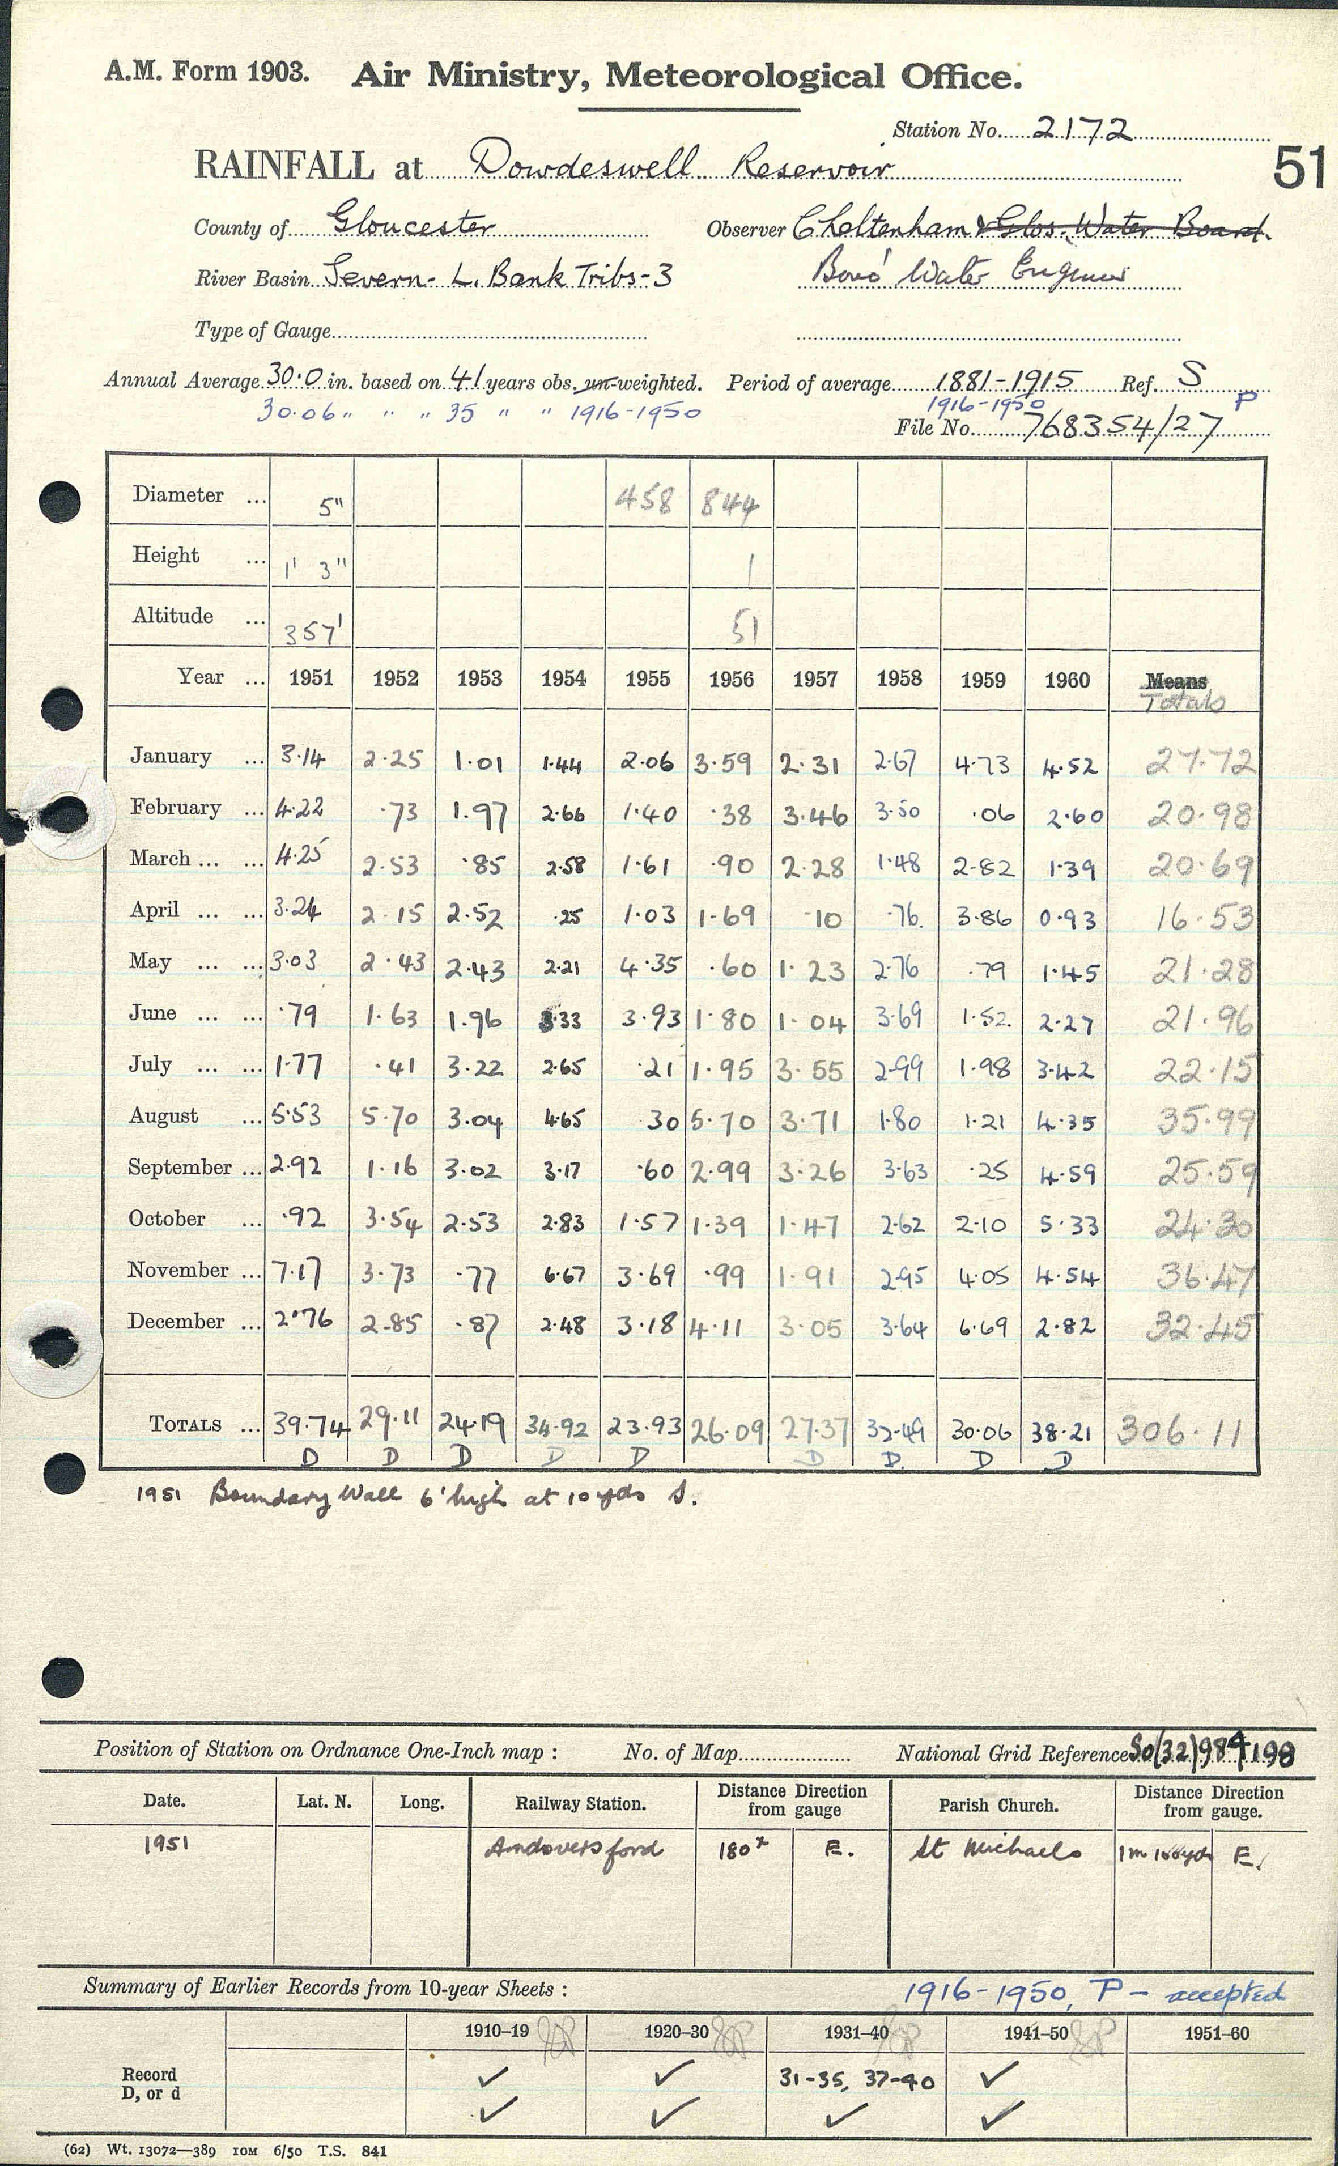 A.M. Form 1903. Air Ministry, Meteorological Office.
Station No. 2172
51
RAINFALL at Dowdeswell Reservoir
County of Gloucester Observer Cheltenham & Glos. Water Board.
River Basin Severn - L. Bank Tribs - 3 Boro' Water Engineer
Type of Gauge
Annual Average 30.0 in. based on 41 years obs. un-weighted. Period of average 1881-1915 Ref. S
30.06 " " " 35 " " 1916-1950 1916-1950 P
File No. 768354/27
Diameter ... 5" 458 844
Height ... 1' 3" 1
Altitude ... 357' 51
Year ... 1951 1952 1953 1954 1955 1956 1957 1958 1959 1960 Means
Totals
January ... 3.14 2.25 1.01 1.44 2.06 3.59 2.31 2.67 4.73 4.52 27.72
February ... 4.22 .73 1.97 2.66 1.40 .38 3.46 3.50 .06 2.60 20.98
March ... ... 4.25 2.53 .85 2.58 1.61 .90 2.28 1.48 2.82 1.39 20.69
April ... ... 3.24 2.15 2.52 .25 1.03 1.69 .10 .76 3.86 0.93 16.53
May ... ... 3.03 2.43 2.43 2.21 4.35 .60 1.23 2.76 .79 1.45 21.28
June ... ... .79 1.63 1.96 3.33 3.93 1.80 1.04 3.69 1.52 2.27 21.96
July ... ... 1.77 .41 3.22 2.65 .21 1.95 3.55 2.99 1.98 3.42 22.15
August ... 5.53 5.70 3.04 4.65 .30 5.70 3.71 1.80 1.21 4.35 35.99
September ... 2.92 1.16 3.02 3.17 .60 2.99 3.26 3.63 .25 4.59 25.59
October ... .92 3.54 2.53 2.83 1.57 1.39 1.47 2.62 2.10 5.33 24.30
November ... 7.17 3.73 .77 6.67 3.69 .99 1.91 2.95 4.05 4.54 36.47
December ... 2.76 2.85 .87 2.48 3.18 4.11 3.05 3.64 6.69 2.82 32.45
TOTALS ... 39.74 29.11 24.19 34.92 23.93 26.09 27.37 32.49 30.06 38.21 306.11
D D D D D D D. D D
1951 Boundary Wall 6' high at 10 yds S.
Position of Station on Ordnance One-Inch map : No. of Map National Grid Reference SO(32)984198
Date. Lat. N. Long. Railway Station. Distance Direction from gauge Parish Church. Distance Direction from gauge.
1951 Andoversford 180 E. St Michaels 1m E.
Summary of Earlier Records from 10-year Sheets : 1916-1950, P - accepted
1910–19 1920–30 1931–40 1941–50 1951–60
Record ✓ ✓ 31-35, 37-40 ✓
D, or d ✓ ✓ ✓ ✓
(62) Wt. 13072—389 10M 6/50 T.S. 841